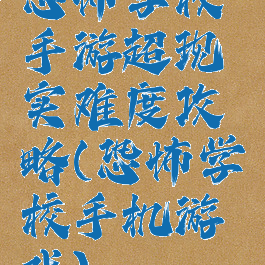 恐怖学校
手游超现
实难度攻
略(恐怖学
校手机游
戏)